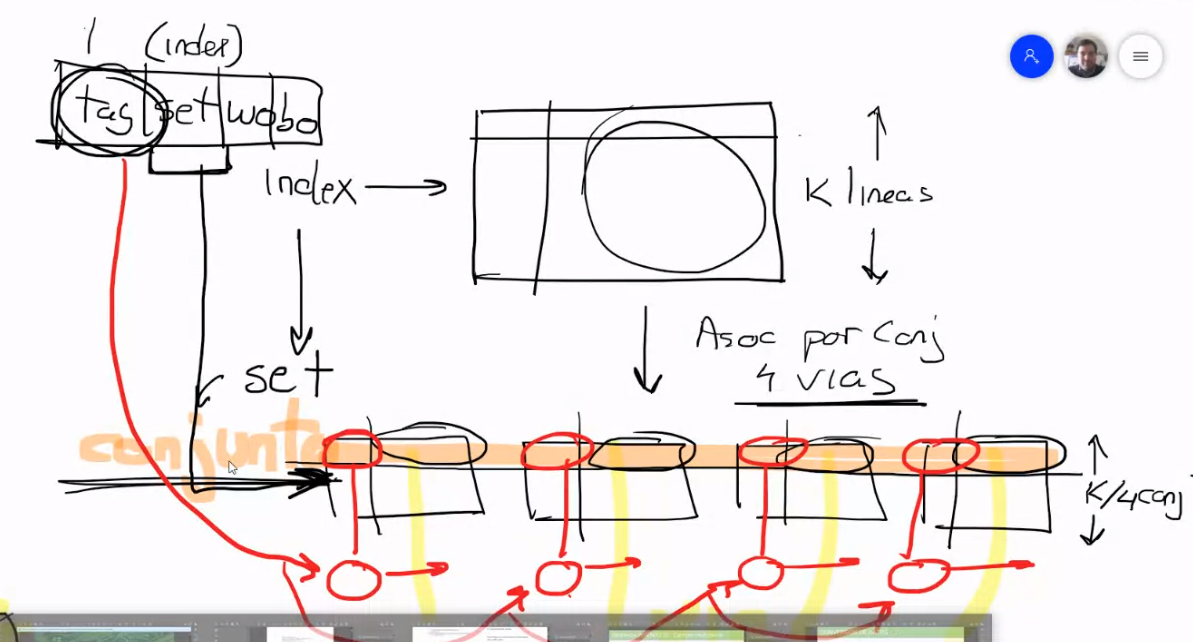 (index)
tag set wo bo
Index
K lineas
Asoc por Conj
4 vias
set
conjunto
K/4 conj